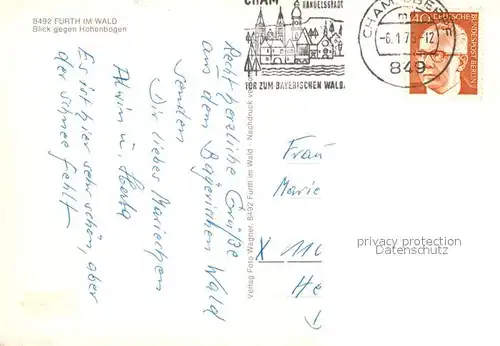 8492 FURTH IM WALD
Blick gegen Hohenbogen
Recht herzliche Grüße
aus dem Bayerischen Wald
senden
Dir liebes Mariechen
Alwin u. Herta
Es ist hier sehr schön, aber
der Schnee fehlt
Verlag Foto Wagner, 8492 Furth im Wald - Nachdruck
CHAM
HANDELSSTADT
TOR ZUM BAYERISCHEN WALD
CHAM, OBERPF
-6.1.75-12
849
40
DEUTSCHE BUNDESPOST BERLIN
Frau
Marie
X
He
privacy protection
Datenschutz